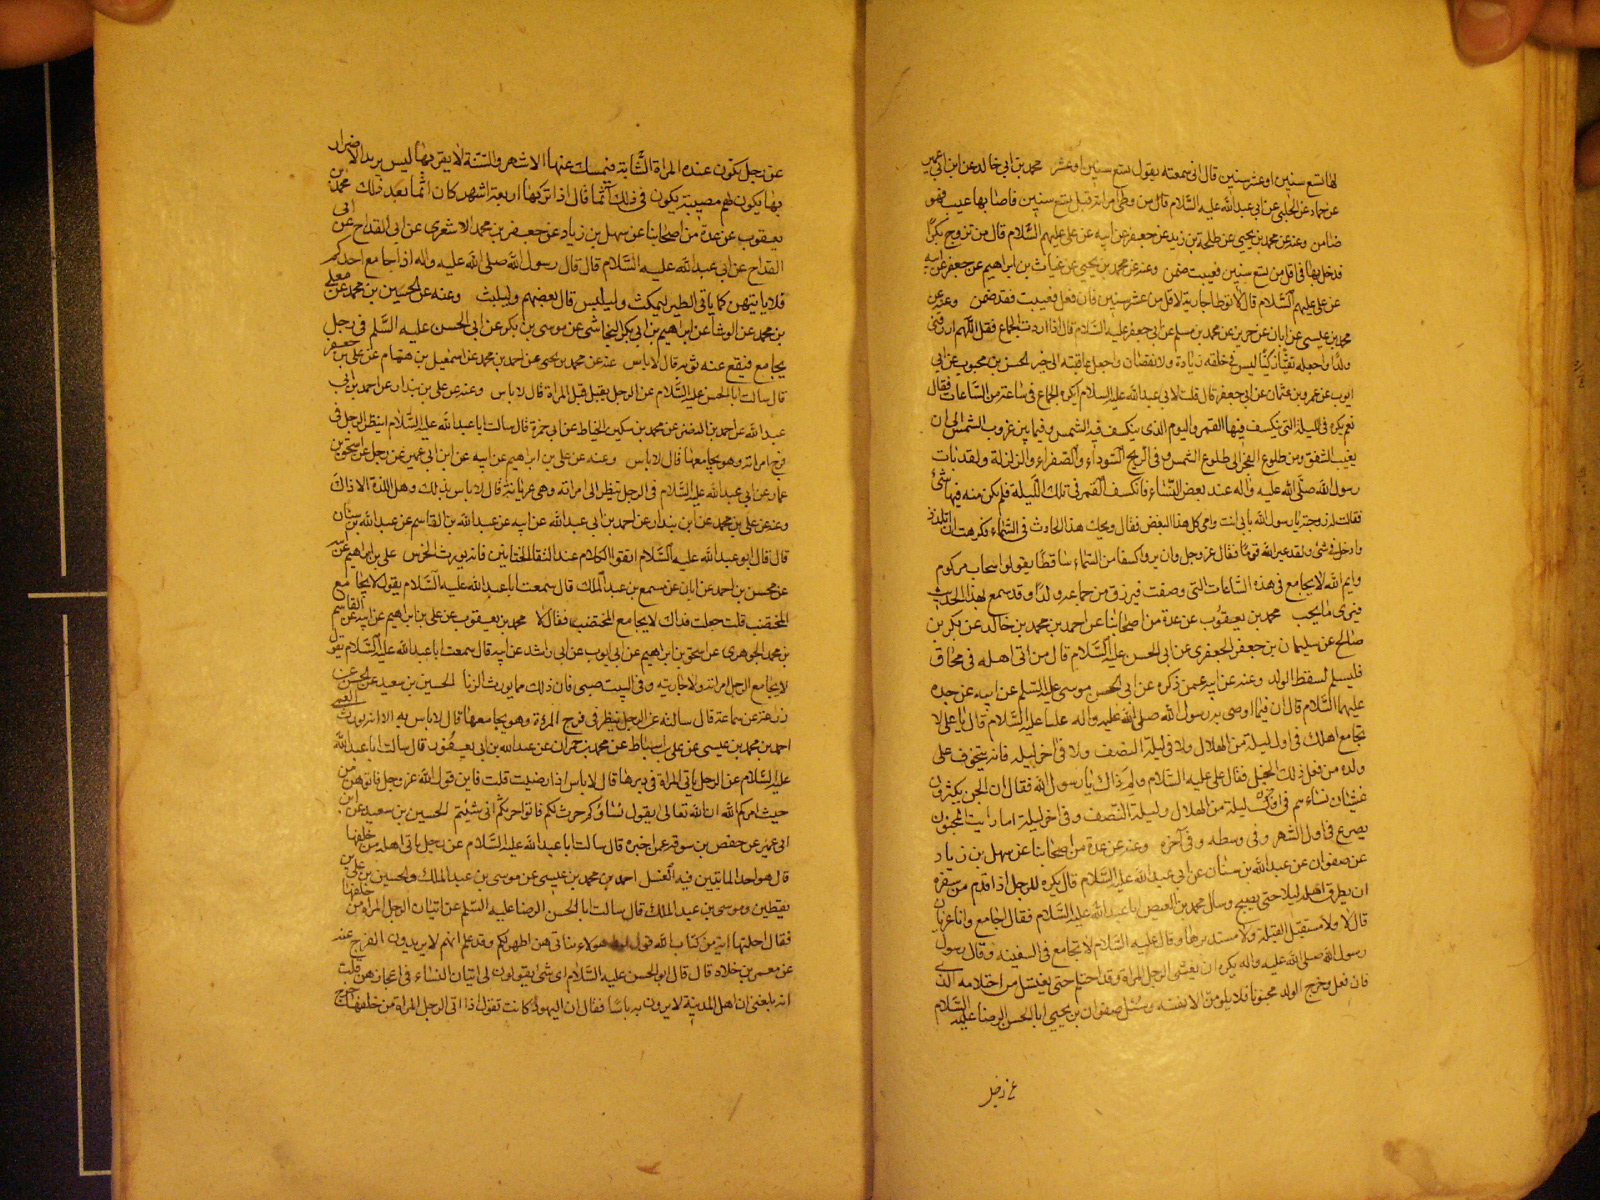 لها تسع سنين او عشر سنين قال اني سمعته يقول تسع سنين او عشر محمد بن ابي خالد عن ابن ابي عمير
عن حماد عن الحلبي عن ابي عبد الله عليه السلام قال من وطئ امراته قبل تسع سنين فاصابها عيب فهو
ضامن وعنه عن محمد بن يحيى عن طلحة بن زيد عن جعفر عن ابيه عن علي عليهم السلام قال من تزوج بكرا
فدخل بها في اقل من تسع سنين فعيبت ضمن وعنه عن محمد بن يحيى عن غياث بن ابراهيم عن جعفر عن ابيه
عن علي عليهم السلام قال لا توطا جارية لاقل من عشر سنين فان فعل فعيبت فقد ضمن وعنه عن
محمد بن عيسى عن ابان عن حريز عن محمد بن مسلم عن ابي جعفر عليه السلام قال اذا اردت الجماع فقل اللهم ارزقني
ولدا واجعله تقيا زكيا ليس في خلقه زيادة ولا نقصان واجعل عاقبته الى خير الحسن بن محبوب عن ابي
ايوب عن عمرو بن عثمان عن ابي جعفر قال قلت لابي عبد الله عليه السلام ايكره الجماع في ساعة من الساعات فقال
نعم يكره في الليلة التي ينكسف فيها القمر واليوم الذي ينكسف فيه الشمس وفيما بين غروب الشمس الى ان
يغيب الشفق ومن طلوع الفجر الى طلوع الشمس وفي الريح السوداء والصفراء والزلزلة ولقد بات
رسول الله صلى الله عليه واله عند بعض النساء فانكسف القمر في تلك الليلة فلم يكن منه فيها شئ
فقالت له زوجته يا رسول الله بابي انت وامي كل هذا البغض فقال ويحك هذا الحادث في السماء فكرهت ان اتلذذ
وادخل في شئ ولقد عير الله قوما فقال عز وجل وان يروا كسفا من السماء ساقطا يقولوا سحاب مركوم
وايم الله لا يجامع في هذه الساعات التي وصفت فيرزق من جماعه ولدا وقد سمع بهذا الحديث
فيرى ما يحب محمد بن يعقوب عن عدة من اصحابنا عن احمد بن محمد بن خالد عن بكر بن
صالح عن سليمان بن جعفر الجعفري عن ابي الحسن عليه السلام قال من اتى اهله في محاق
فليسلم لسقط الولد وعنه عن ابيه عمن ذكره عن ابي الحسن موسى عليه السلم عن ابيه عن جده
عليهما السلام قال ان فيما اوصى به رسول الله صلى الله عليه واله عليا عليه السلام قال يا علي لا
تجامع اهلك في اول ليلة من الهلال ولا في ليلة النصف ولا في اخر ليلة فانه يتخوف على
ولد من فعل ذلك الخبل فقال علي عليه السلام ولم ذاك يا رسول الله فقال ان الجن يكثرون
غشيان نساءهم في اول ليلة من الهلال وليلة النصف وفي اخر ليلة اما رايت المجنون
يصرع في اول الشهر وفي وسطه وفي آخره وعنه عن عدة من اصحابنا عن سهل بن زياد
عن صفوان عن عبد الله بن سنان عن ابي عبد الله عليه السلام قال يكره للرجل اذا قدم من سفره
ان يطرق اهله ليلا حتى يصبح وسال محمد بن العيص ابا عبد الله عليه السلام فقال اجامع وانا عريان
قال لا ولا مستقبل القبلة ولا مستدبرها وقال عليه السلام لا تجامع في السفينة وقال رسول
رسول الله صلى الله عليه واله يكره ان يغشى الرجل المراة وقد احتلم حتى يغتسل من احتلامه الذي
فان فعل وخرج الولد مجنونا فلا يلومن الا نفسه وسئل صفوان بن يحيى ابا الحسن الرضا عليه السلام
عن رجل
عن رجل يكون عنده المراة الشابة فيمسك عنها الاشهر والسنة لا يقربها ليس يريد الاضرار
بها يكون لهم مصيبة يكون في ذلك آثما قال اذا تركها اربعة اشهر كان آثما بعد ذلك محمد بن
يعقوب عن عدة من اصحابنا عن سهل بن زياد عن جعفر بن محمد الاشعري عن ابي القداح عن ابي
القداح عن ابي عبد الله عليه السلام قال قال رسول الله صلى الله عليه واله اذا جامع احدكم
فلا ياتيهن كما ياتي الطير ليمكث وليلبس قال بعضهم وليلبث وعنه عن الحسين بن محمد عن معلى
بن محمد عن الوشا عن ابراهيم بن ابي بكر النخاشي عن موسى بن بكر عن ابي الحسن عليه السلم في رجل
يجامع فيقع عنه ثوبه قال لا باس عنه عن محمد بن يحيى عن احمد بن محمد عن اسمعيل بن همام عن علي بن جعفر
قال سالت ابا الحسن عليه السلام عن الرجل يقبل قبل المراة قال لا باس وعنه عن علي بن بندار عن احمد بن ابي
عبد الله عن احمد بن النضر عن محمد بن سكين الخياط عن ابي حمزة قال سالت ابا عبد الله عليه السلام اينظر الرجل في
فرج امراته وهو يجامعها قال لا باس وعنه عن علي بن ابراهيم عن ابيه عن ابن ابي عمير عن رجل عن اسحق بن
عمار عن ابي عبد الله عليه السلام في الرجل ينظر الى امراته وهي عريانة قال لا باس بذلك وهل اللذة الا ذاك
وعنه عن علي بن محمد عن ابن بندار عن احمد بن ابي عبد الله عن ابيه عن عبد الله بن القاسم عن عبد الله بن سنان
قال قال ابو عبد الله عليه السلام اتقوا الكلام عند التقاء الختانين فانه يورث الخرس علي بن ابراهيم عن
عن محسن بن احمد عن ابان عن مسمع بن عبد الملك قال سمعت ابا عبد الله عليه السلام يقول لا يجامع
المختضب قلت جعلت فداك لا يجامع المختضب فقال لا محمد بن يعقوب عن علي بن ابراهيم عن ابيه عن القاسم
بن محمد الجوهري عن اسحق بن ابراهيم عن ابي ايوب عن ابي راشد عن ابيه قال سمعت ابا عبد الله عليه السلام يقول
لا يجامع الرجل امراته ولا جاريته وفي البيت صبي فان ذلك مما يورث الزنا الحسين بن سعيد عن الحسن عن
زرعة عن سماعة قال سالته عن الرجل ينظر في فرج المراة وهو يجامعها قال لا باس به الا انه يورث العمى
احمد بن محمد بن عيسى عن علي بن اسباط عن محمد بن حمران عن عبد الله بن ابي يعفور قال سالت ابا عبد الله
عليه السلام عن الرجل ياتي المراة في دبرها قال لا باس اذا رضيت قلت فاين قول الله عز وجل فاتوهن من
حيث امركم الله ان الله تعالى يقول نساؤكم حرث لكم فاتوا حرثكم انى شئتم الحسين بن سعيد عن ابن
ابي عمير عن حفص بن سوقة عمن اخبره قال سالت ابا عبد الله عليه السلام عن رجل ياتي اهله من خلفها
قال هو احد الماتيين فيه الغسل احمد بن محمد بن عيسى عن موسى بن عبد الملك والحسين بن علي بن
يقطين وموسى بن عبد الملك قال سالت ابا الحسن الرضا عليه السلم عن اتيان الرجل المراة من خلفها
فقال احلتها اية من كتاب الله قول لوط هولاء بناتي هن اطهر لكم وقد علم انهم لا يريدون الفرج عنه
عن معمر بن خلاد قال قال ابو الحسن عليه السلام اي شئ يقولون في اتيان النساء في اعجازهن قلت
انه بلغني ان اهل المدينة لا يرون به باسا فقال ان اليهود كانت تقول اذا اتى الرجل المراة من خلفها خرج